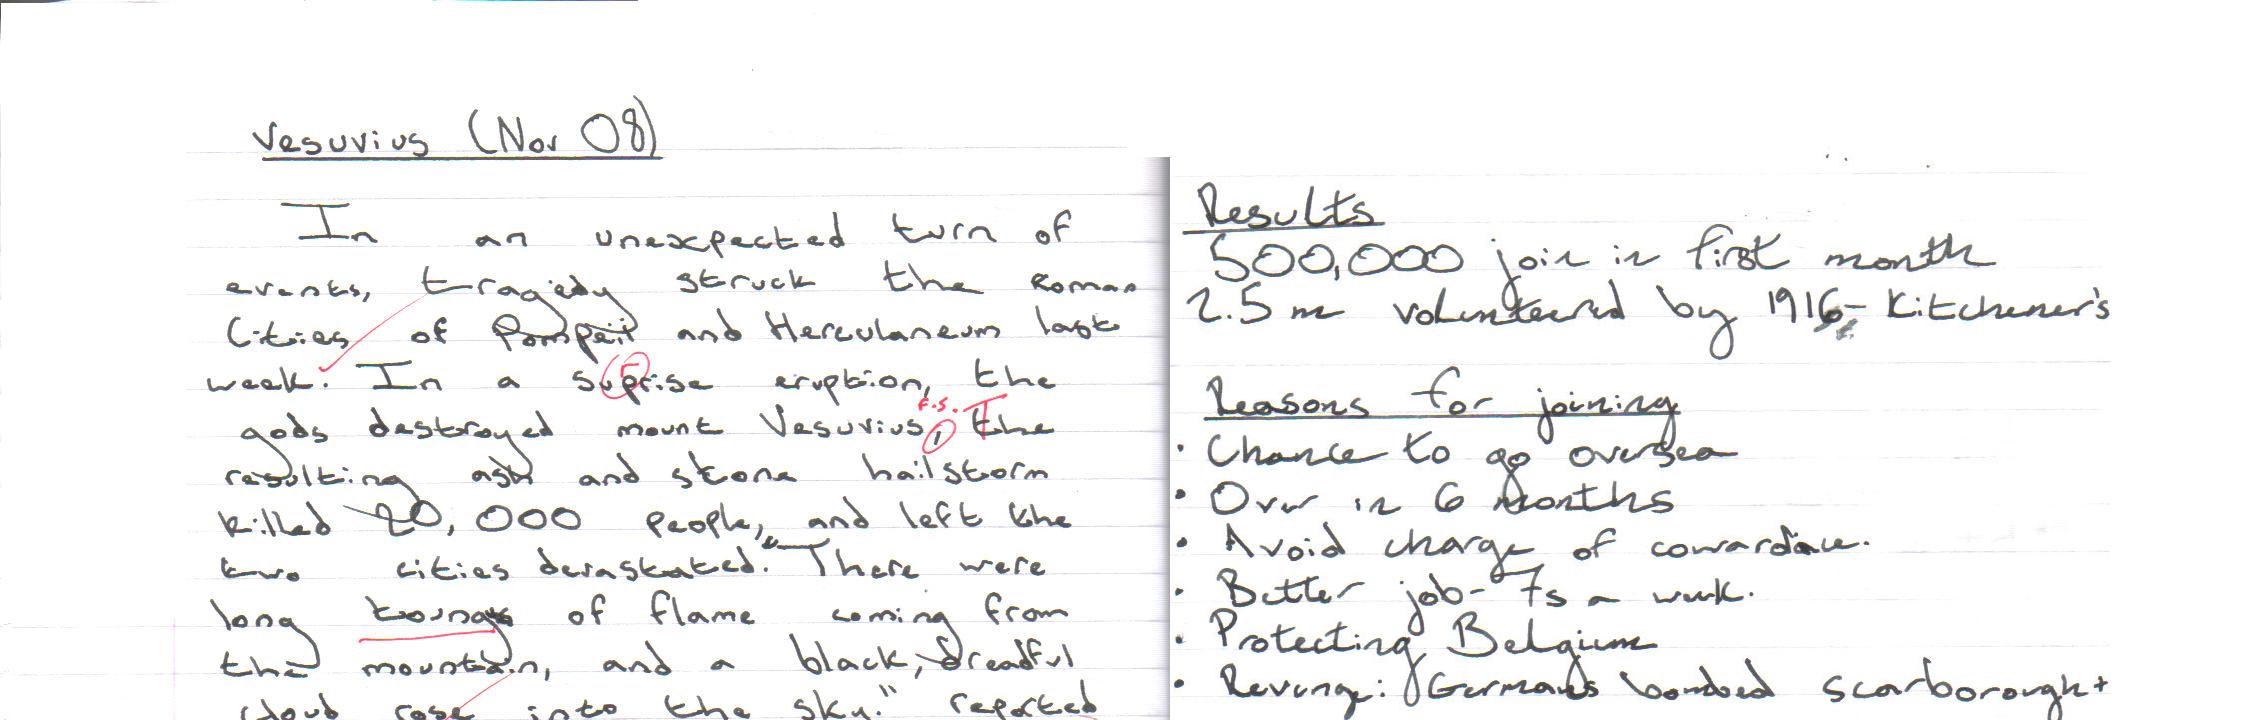 Vesuvius (Nov 08)
In an unexpected turn of
events, tragedy struck the Roman
Cities of Pompeii and Herculaneum last
week. In a suprise eruption, the
gods destroyed mount Vesuvius, the
resulting ash and stone hailstorm
killed 20,000 people, and left the
two cities devastated. "There were
long toungs of flame coming from
the mountain, and a black, dreadful
cloud rose into the sky." reported
r
F.S. T
Results
500,000 join in first month
2.5m volunteered by 1916- Kitchener's
Reasons for joining
• Chance to go oversea
• Over in 6 months
• Avoid charge of cowardice.
• Better job- 7s a week.
• Protecting Belgium
• Revenge: Germans bombed scarborough+